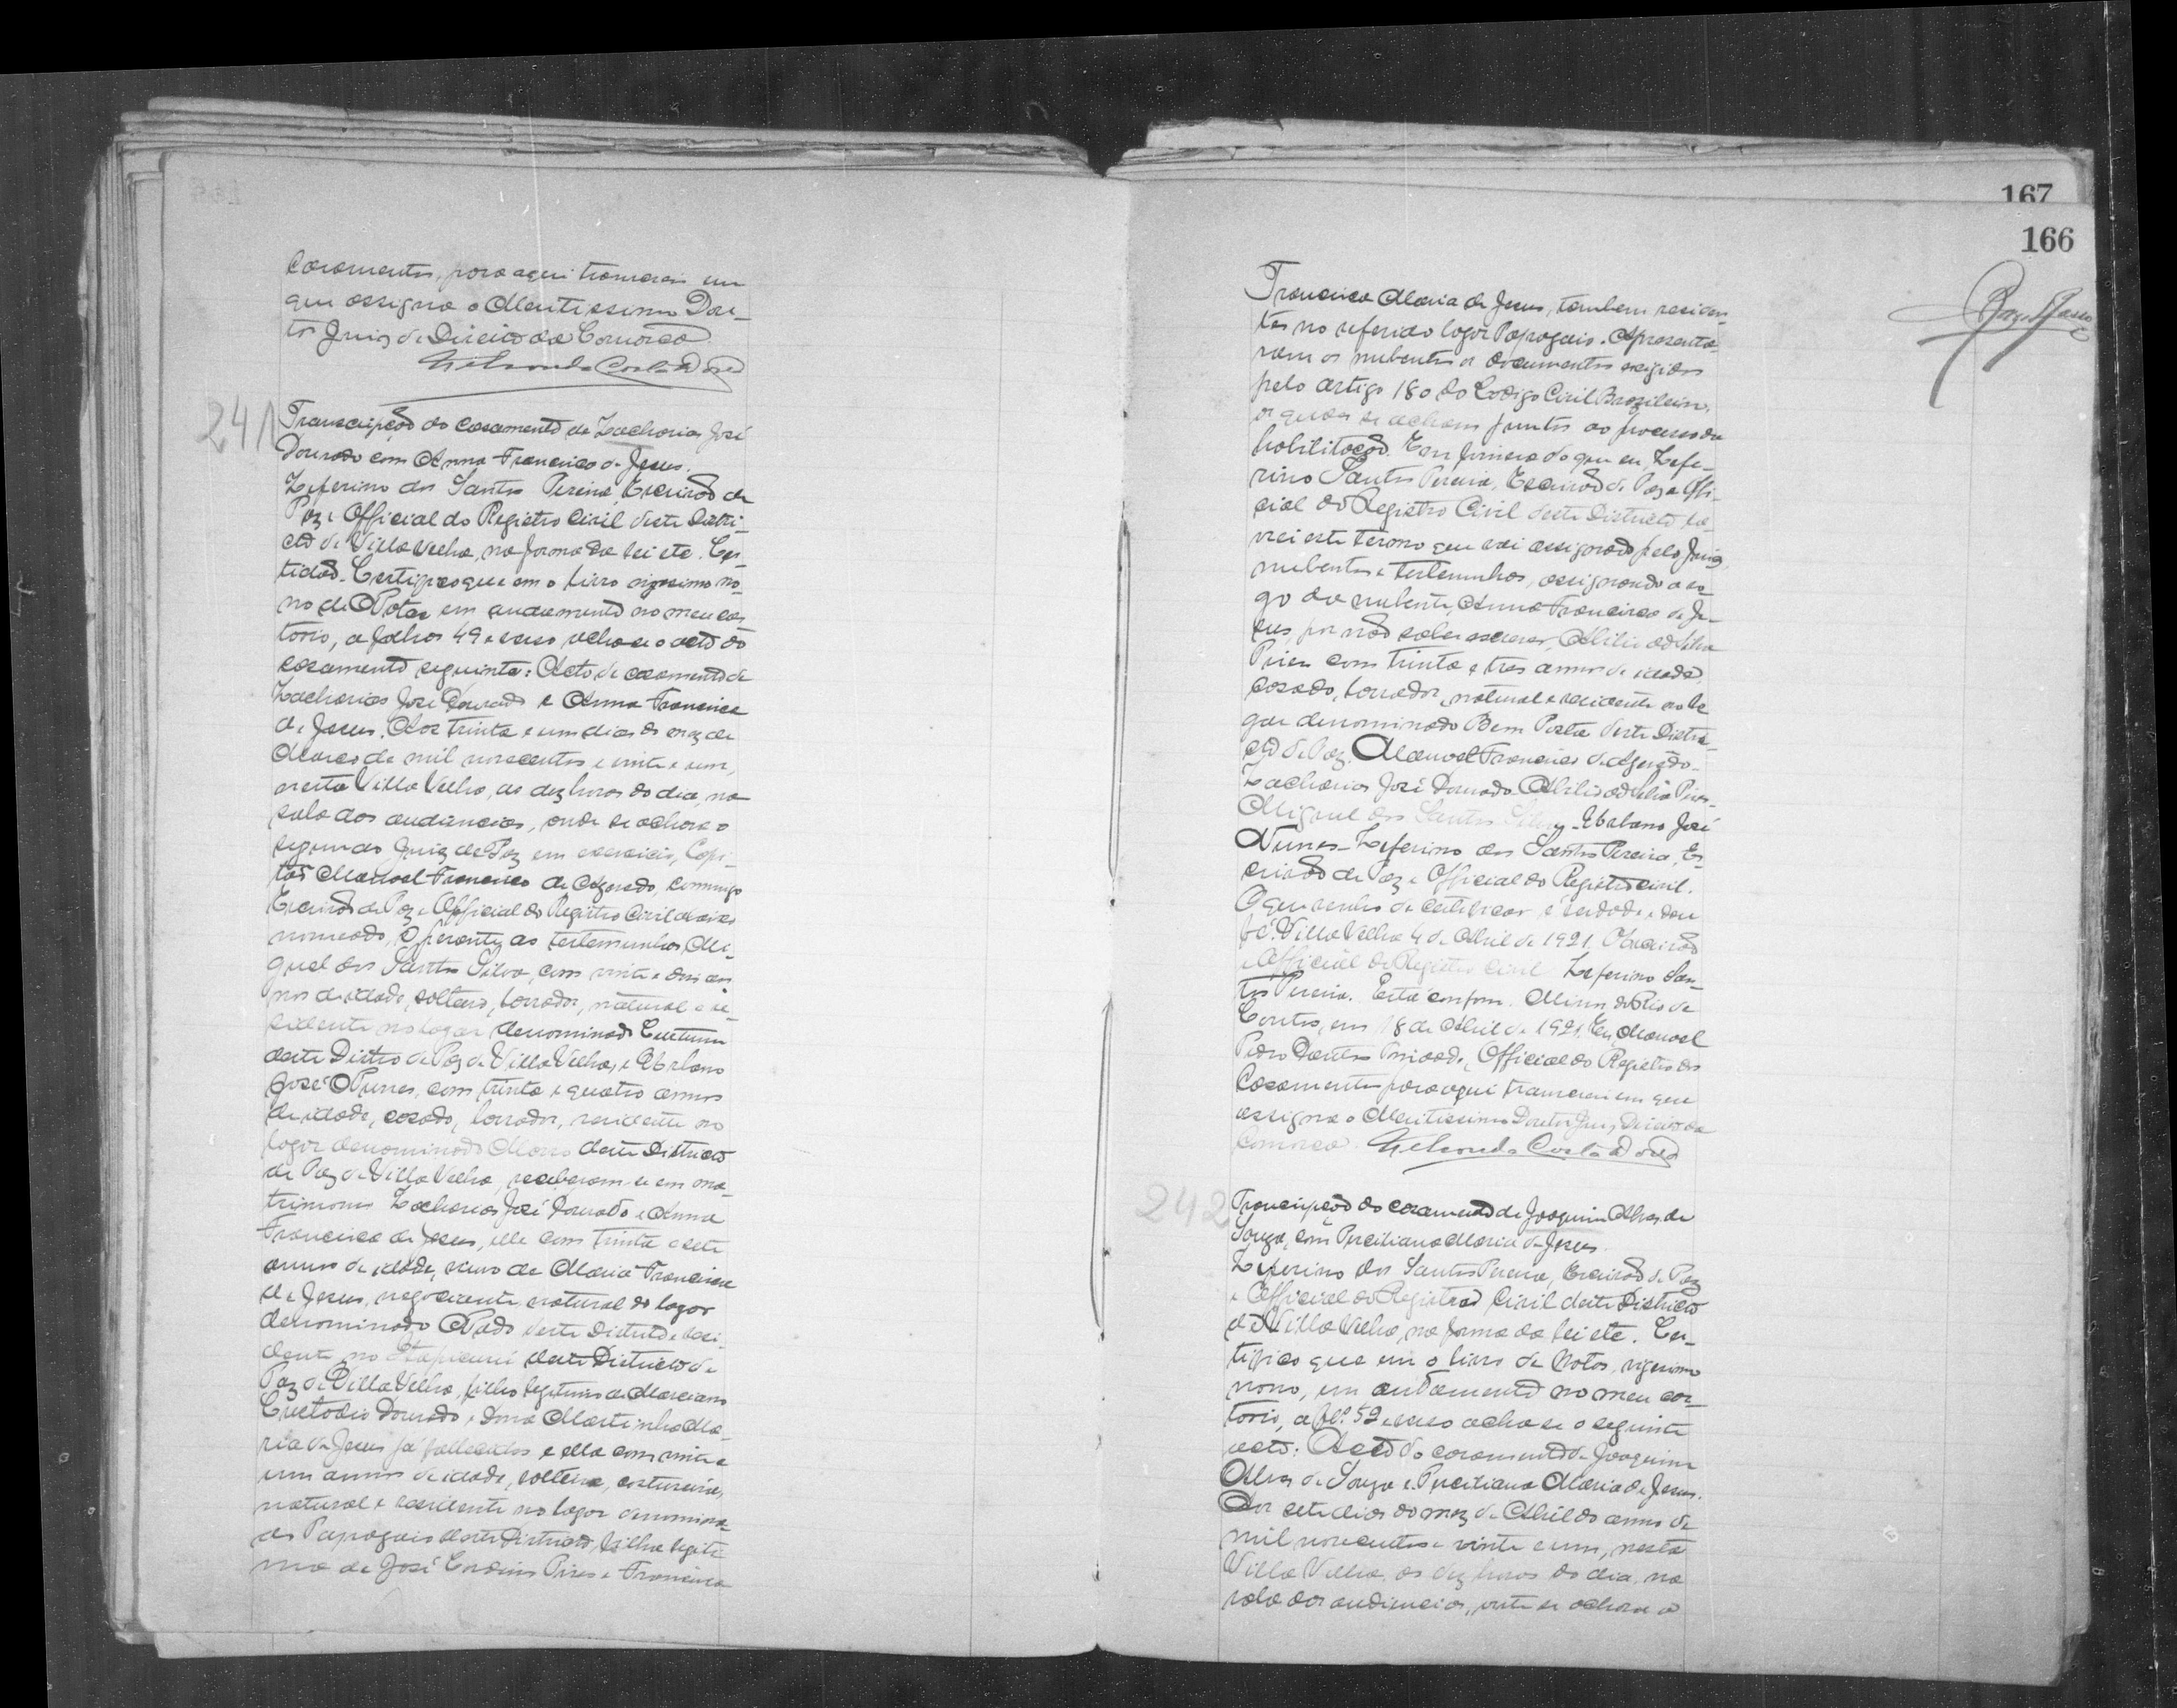 Casamentos, para aqui transcrevi em
que assigna o Meritissimo Dou-
tor Juiz de Direito da Comarca.
241
Transcripção do Casamento de Zacharias José
Dourado com Anna Francisca de Jesus.
Zeferino dos Santos Pereira, Escrivão de
Paz e Official do Registro Civil deste Distri-
cto de Villa Velha, na forma da lei etc. Cer-
tidão. Certifico que em o livro vigesimo no-
no de Notas em andamento no meu car-
torio, a folhas 49 e verso acha-se o acto do
casamento seguinte: Acto de casamento de
Zacharias José Dourado e Anna Francisca
de Jesus. Aos trinta e um dias do mez de
Março de mil novecentos e vinte e um,
nesta Villa Velha, as dez horas do dia, na
sala das audiencias, onde se achava o
segundo Juiz de Paz em exercicio, Capi-
tão Manoel Francisco de Azevedo, commigo
Escrivão de Paz e Official do Registro Civil abaixo
nomeado, e perante as testemunhas Mi-
guel dos Santos Silva, com vinte e dois an-
nos de idade, solteiro, lavrador, natural e re-
sidente no logar denominado
deste Districto de Paz de Villa Velha, e Urbano
José Nunes, com trinta e quatro annos
de idade, casado, lavrador, residente no
logar denominado Morro deste Districto
de Paz de Villa Velha, receberam-se em ma-
trimonio Zacharias José Dourado e Anna
Francisca de Jesus, elle com trinta e sete
annos de idade, viuvo de Maria Francisca
de Jesus, negociante, natural do logar
denominado Nado deste Districto e resi-
dente no Itapicurú deste Districto de
Paz de Villa Velha, filho legitimo de Marciano
Custodio Dourado e Dona Martinha Ma-
ria de Jesus já fallecidos e ella com vinte e
um annos de idade, solteira, costureira,
natural e residente no logar denomina-
do Papagaio deste Districto, filha legiti-
ma de José Pires e Francisca
167
166
Francisca Maria de Jesus, tambem residen-
tes no referido logar Papagaio. Apresenta-
ram os nubentes os documentos exigidos
pelo artigo 180 do Codigo Civil Brazileiro,
os quaes se acham juntos ao processo de
habilitação. Em firmeza do que eu, Zefe-
rino Santos Pereira, Escrivão de Paz e Offi-
cial do Registro Civil deste Districto la-
vrei este termo que vai assignado pelo Juiz,
nubentes e testemunhas, assignando a ro-
go da nubente, Anna Francisca de Je-
sus, por não saber escrever, Abilio da Silva
Pires com trinta e tres annos de idade,
casado, lavrador, natural e residente no lo-
gar denominado Bem Posta deste Distri-
cto de Paz. Manoel Francisco de Azevedo-
Zacharias José Dourado-Abilio da Silva Pires-
Miguel dos Santos Silva-Urbano José
Nunes-Zeferino dos Santos Pereira, Es-
crivão de Paz e Official do Registro Civil.
O que venho de certificar é verdade e dou
fé. Villa Velha 4 de Abril de 1921. O Escrivão
e Official do Registro Civil Zeferino San-
tos Pereira. Está conforme. Minas do Rio de
Contas, em 18 de Abril de 1921. Eu, Manoel
Pedro Dantas Official do Registro dos
Casamentos para aqui transcrevi em que
assigna o Meritissimo Doutor Juiz Direito da
Comarca.
242
Transcripção do casamento de Joaquim Alves de
Souza, com Perciliana Maria de Jesus.
Zeferino dos Santos Pereira, Escrivão de Paz
e Official do Registro Civil deste Districto
de Villa Velha, na forma da lei etc. Cer-
tifico que em o livro de Notas, vigesimo
nono, em andamento no meu car-
torio, a fls. 52 e verso acha-se o seguinte
acto: Acto do casamento de Joaquim
Alves de Souza e Perciliana Maria de Jesus.
Aos sete dias do mez de Abril do anno de
mil novecentos e vinte e um, nesta
Villa Velha, as dez horas do dia, na
sala das audiencias, onde se achava o